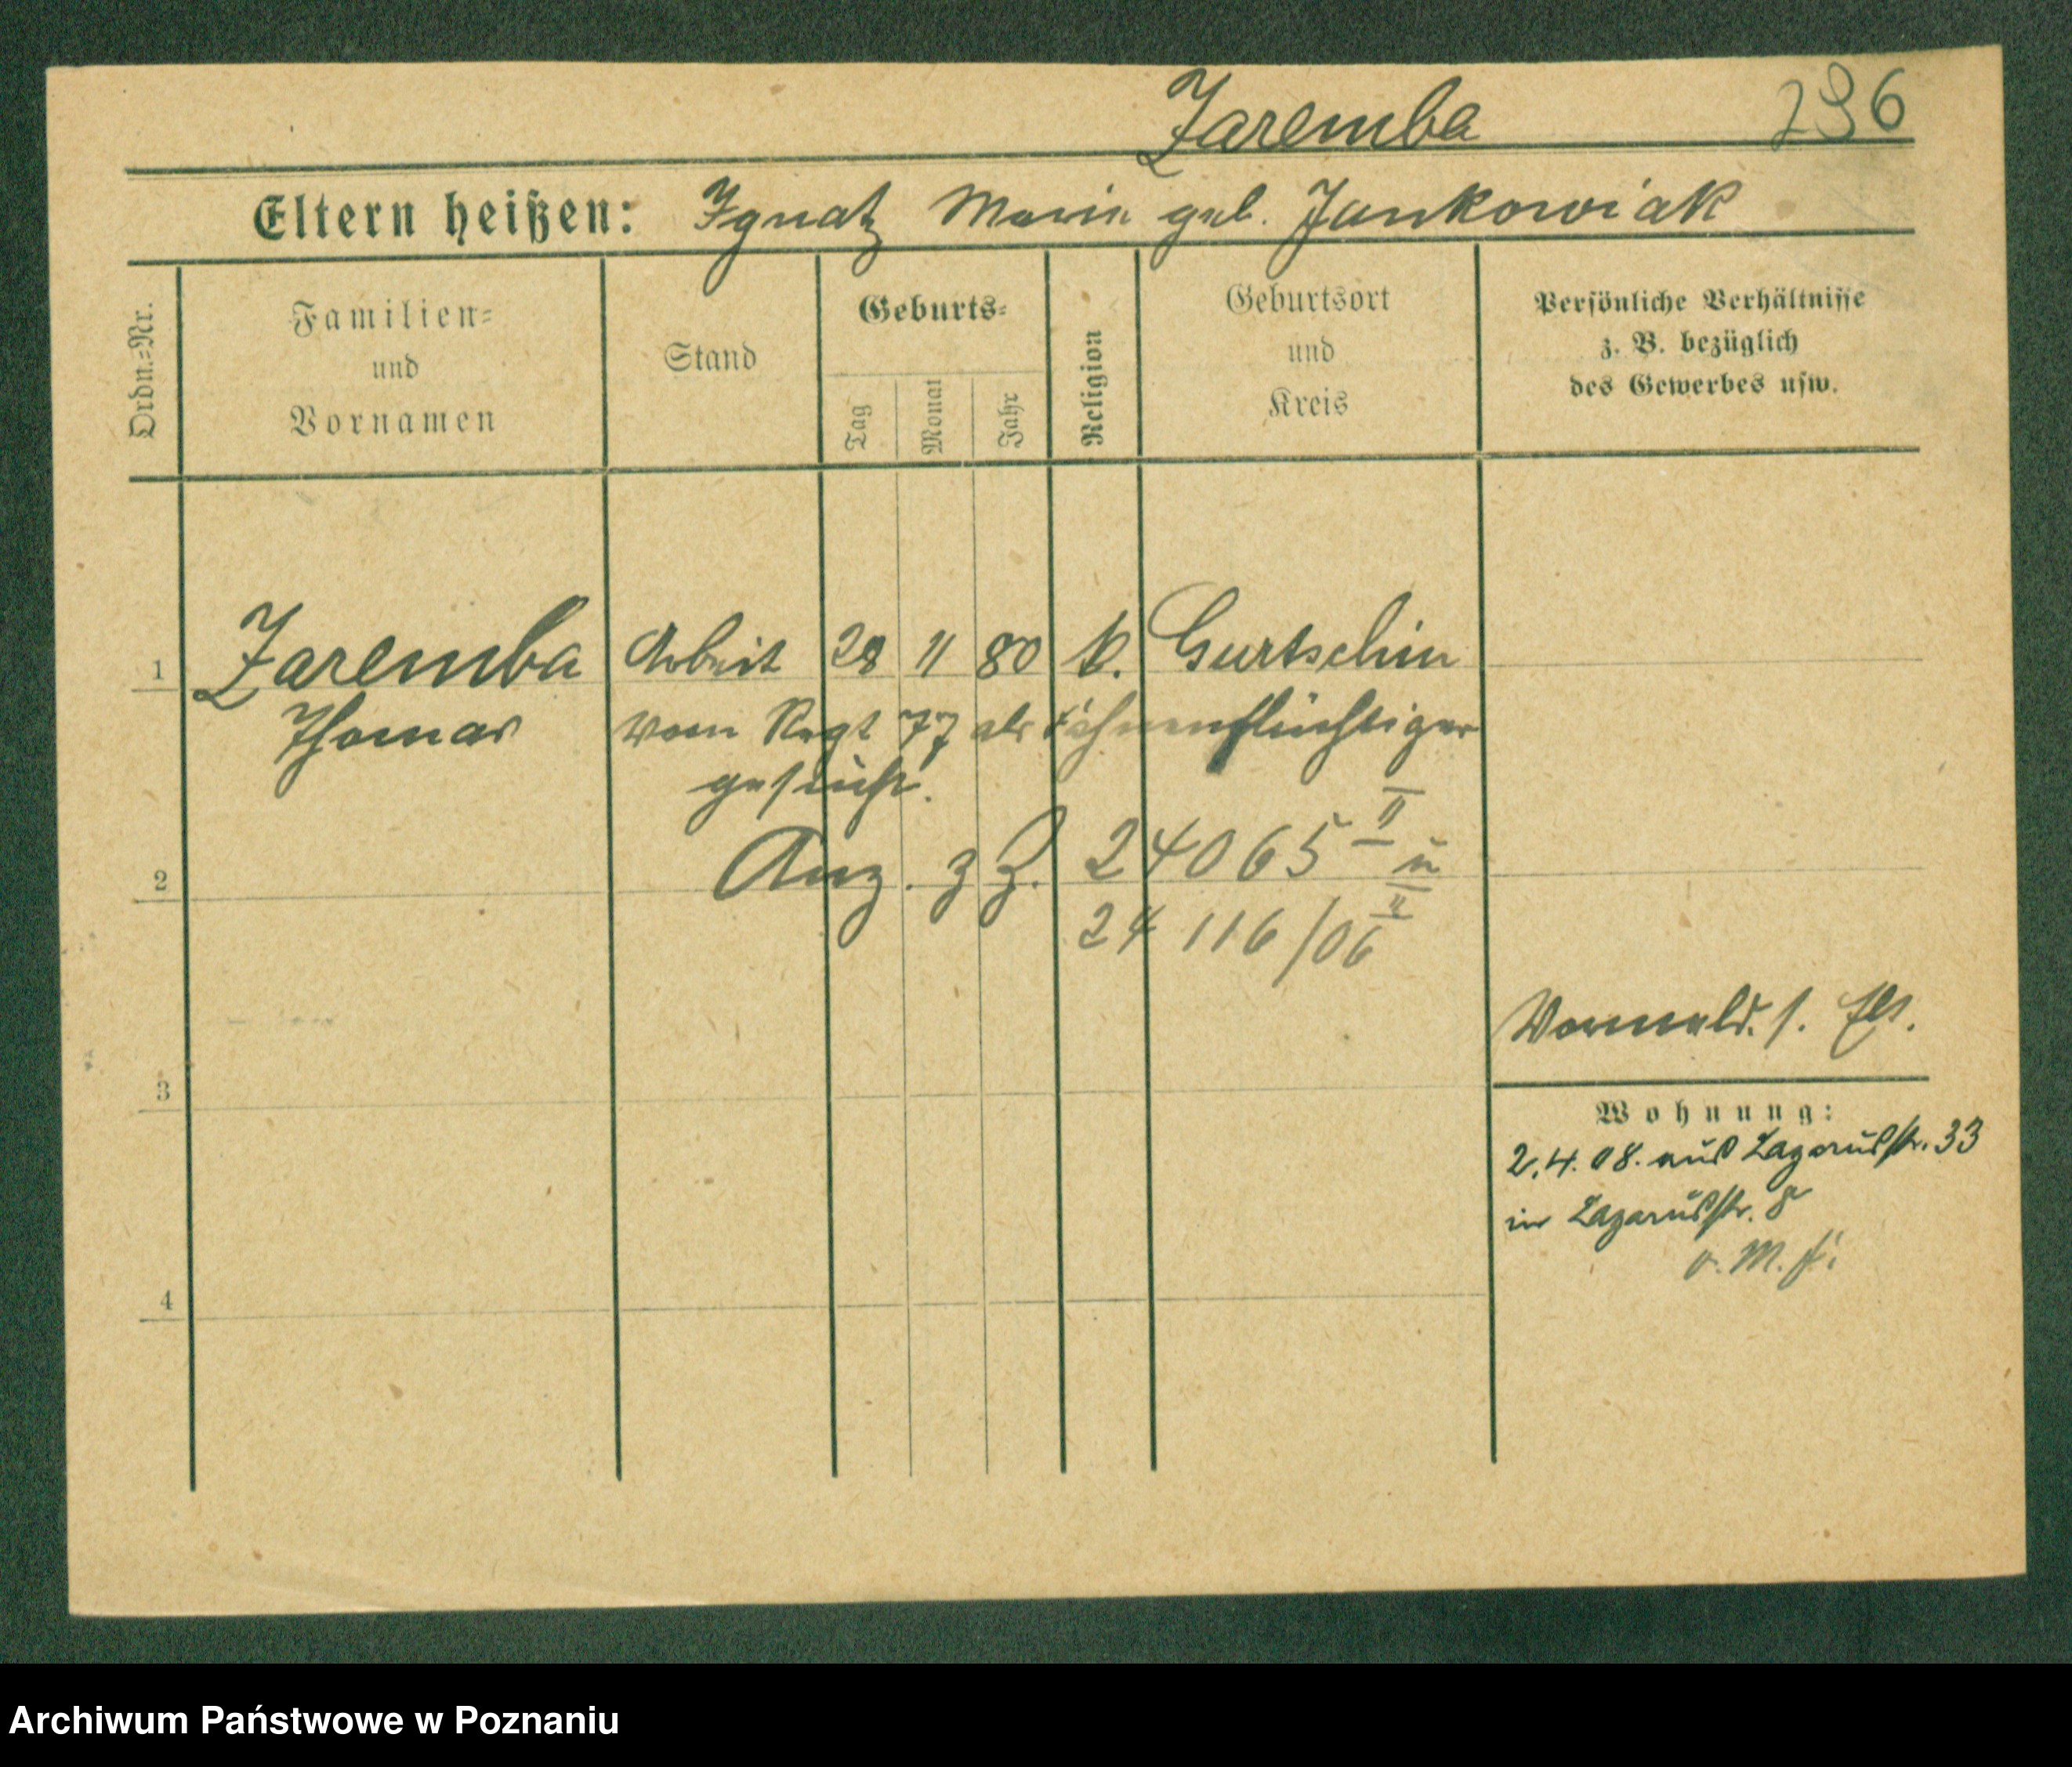 Zaremba 296
Eltern heißen: Ignatz Marie geb. Jankowiak
Ordn.=Nr.
Familien=
und
Vornamen
Stand
Geburts=
Tag
Monat
Jahr
Religion
Geburtsort
und
Kreis
Persönliche Verhältnisse
z. B. bezüglich
des Gewerbes usw.
1 Zaremba Arbeit 28 11 80 k. Gurtschin
Thomas vom Regt 77 als Fahnenflüchtiger
gesucht.
Anz. z Z. 24065 II u
2
24 116/06 II
Vormeld. s.
3
Wohnung:
2.4.08. aus Lazarusstr. 33
in Lazarusstr. 8
4
Archiwum Państwowe w Poznaniu